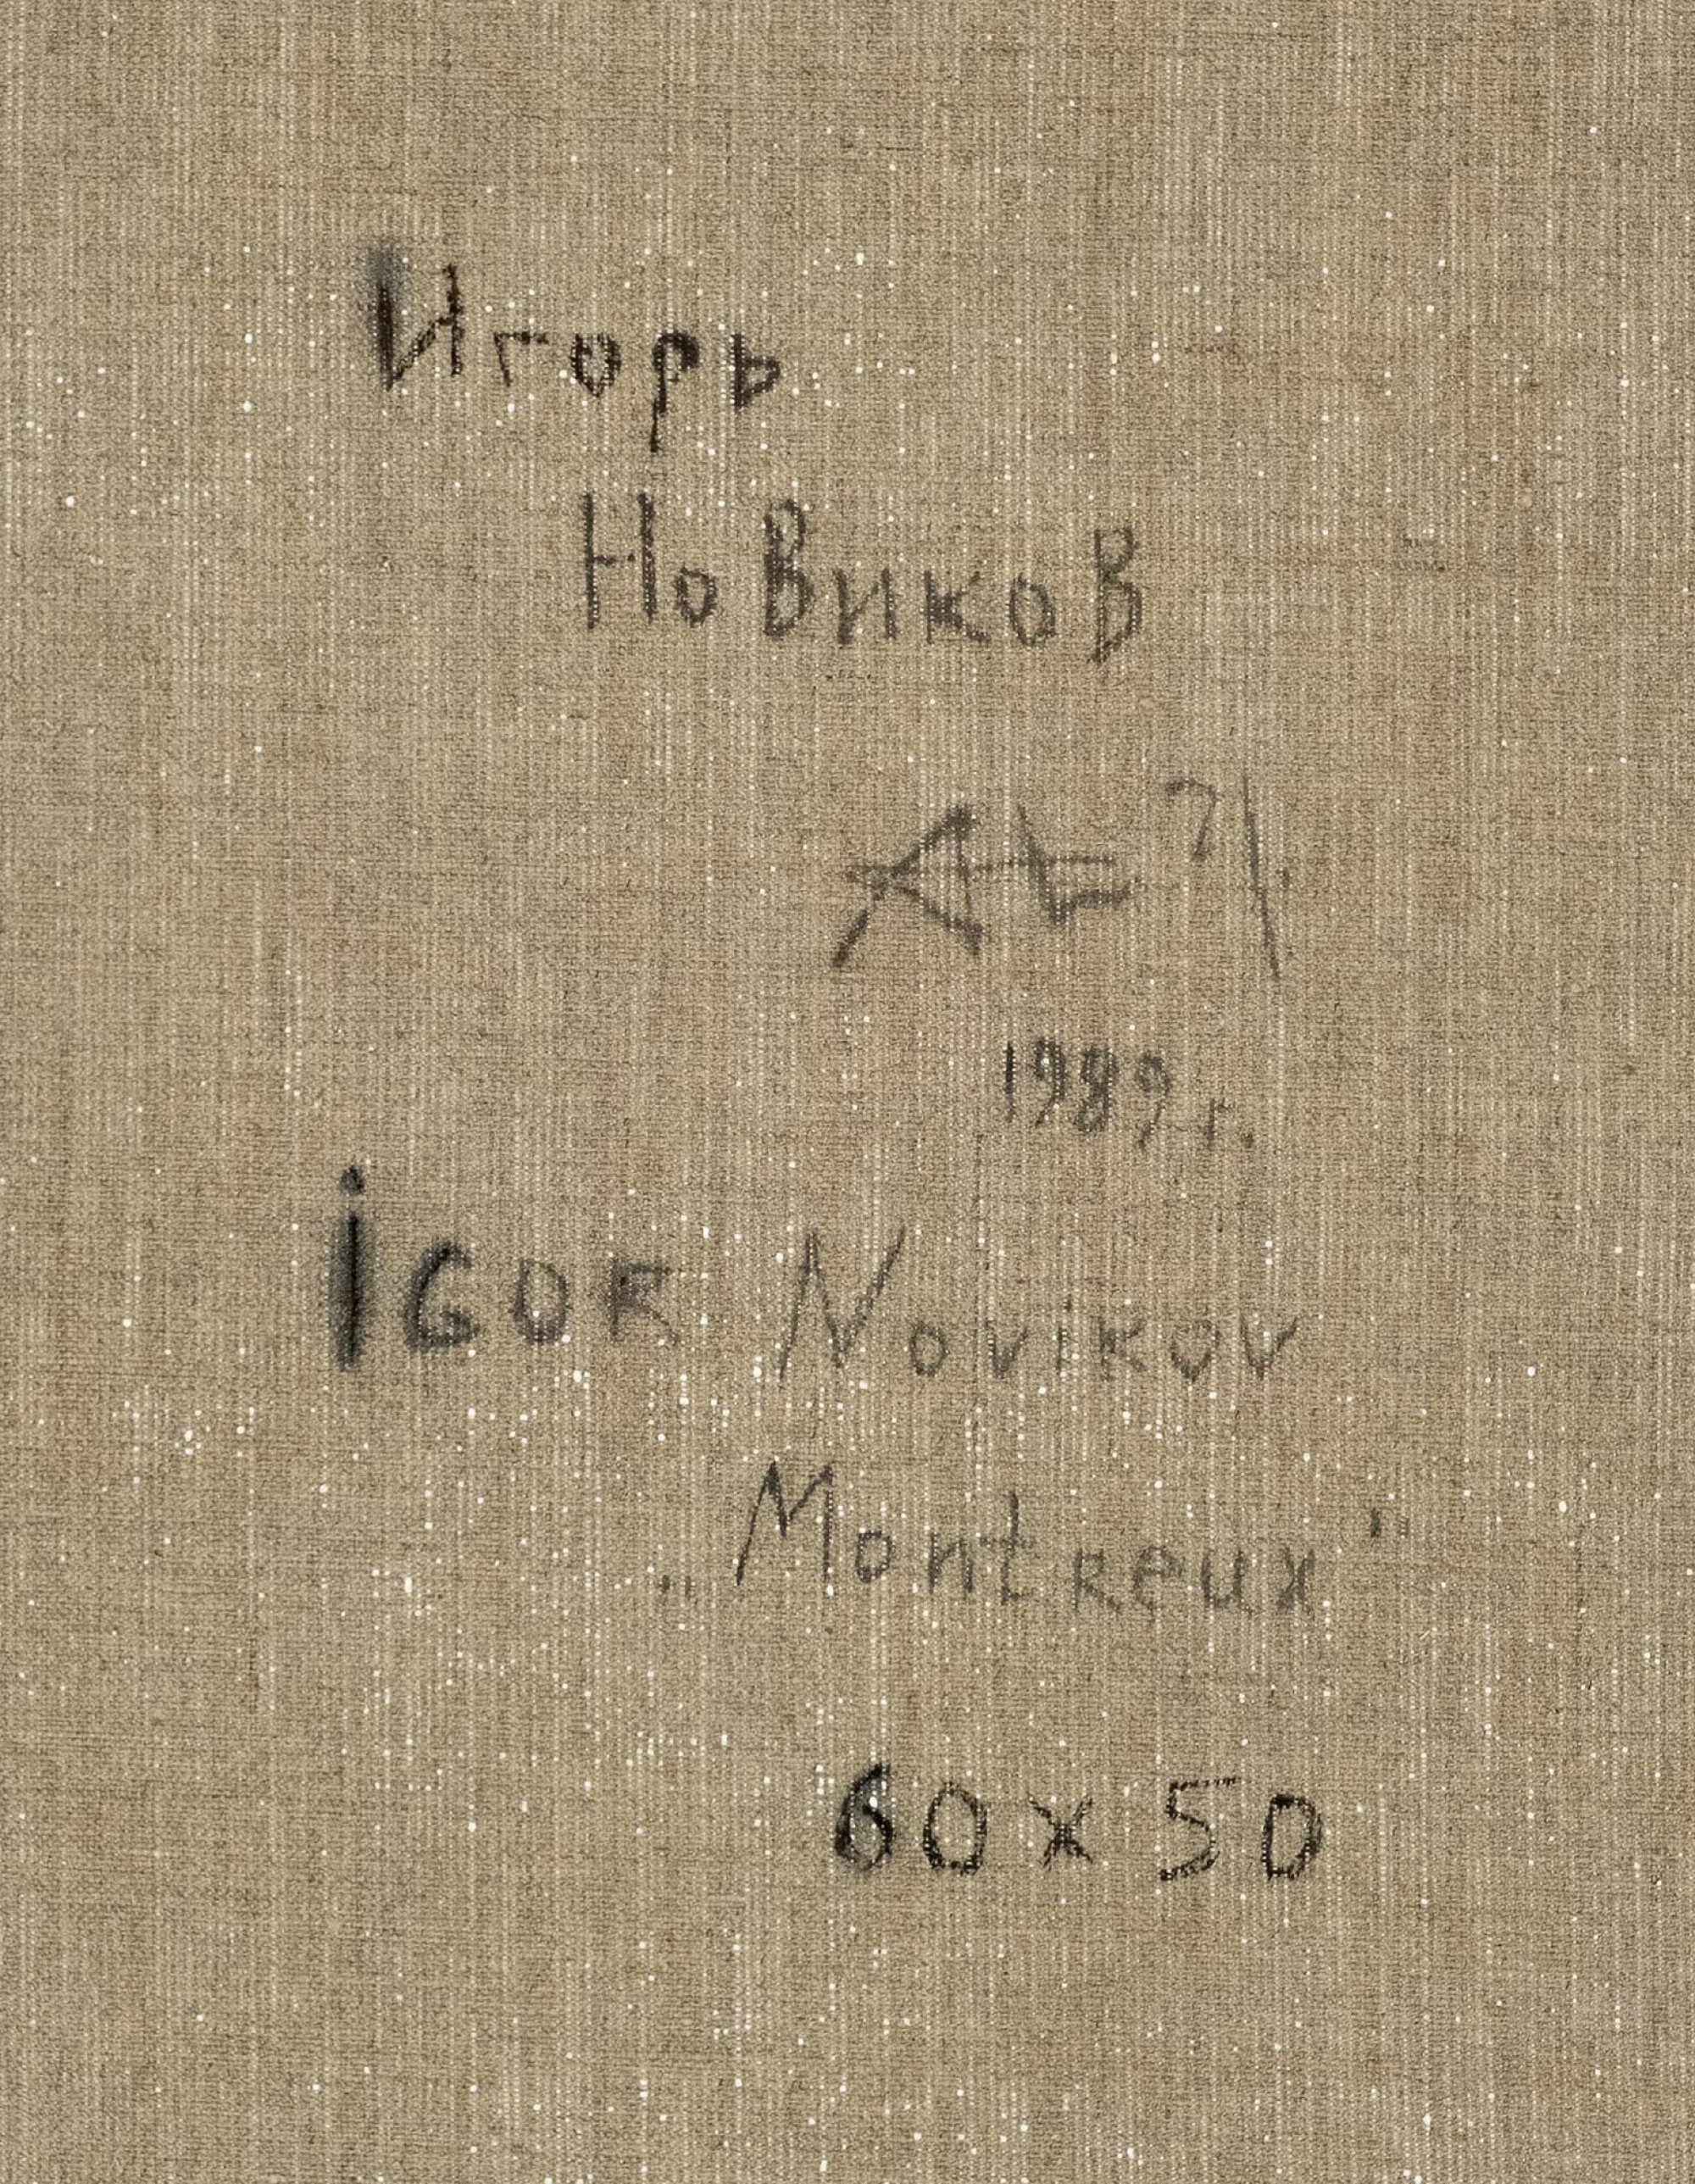 Игорь
Новиков
1989 г.
iGOR Novikov
„Montreux"
60 x 50